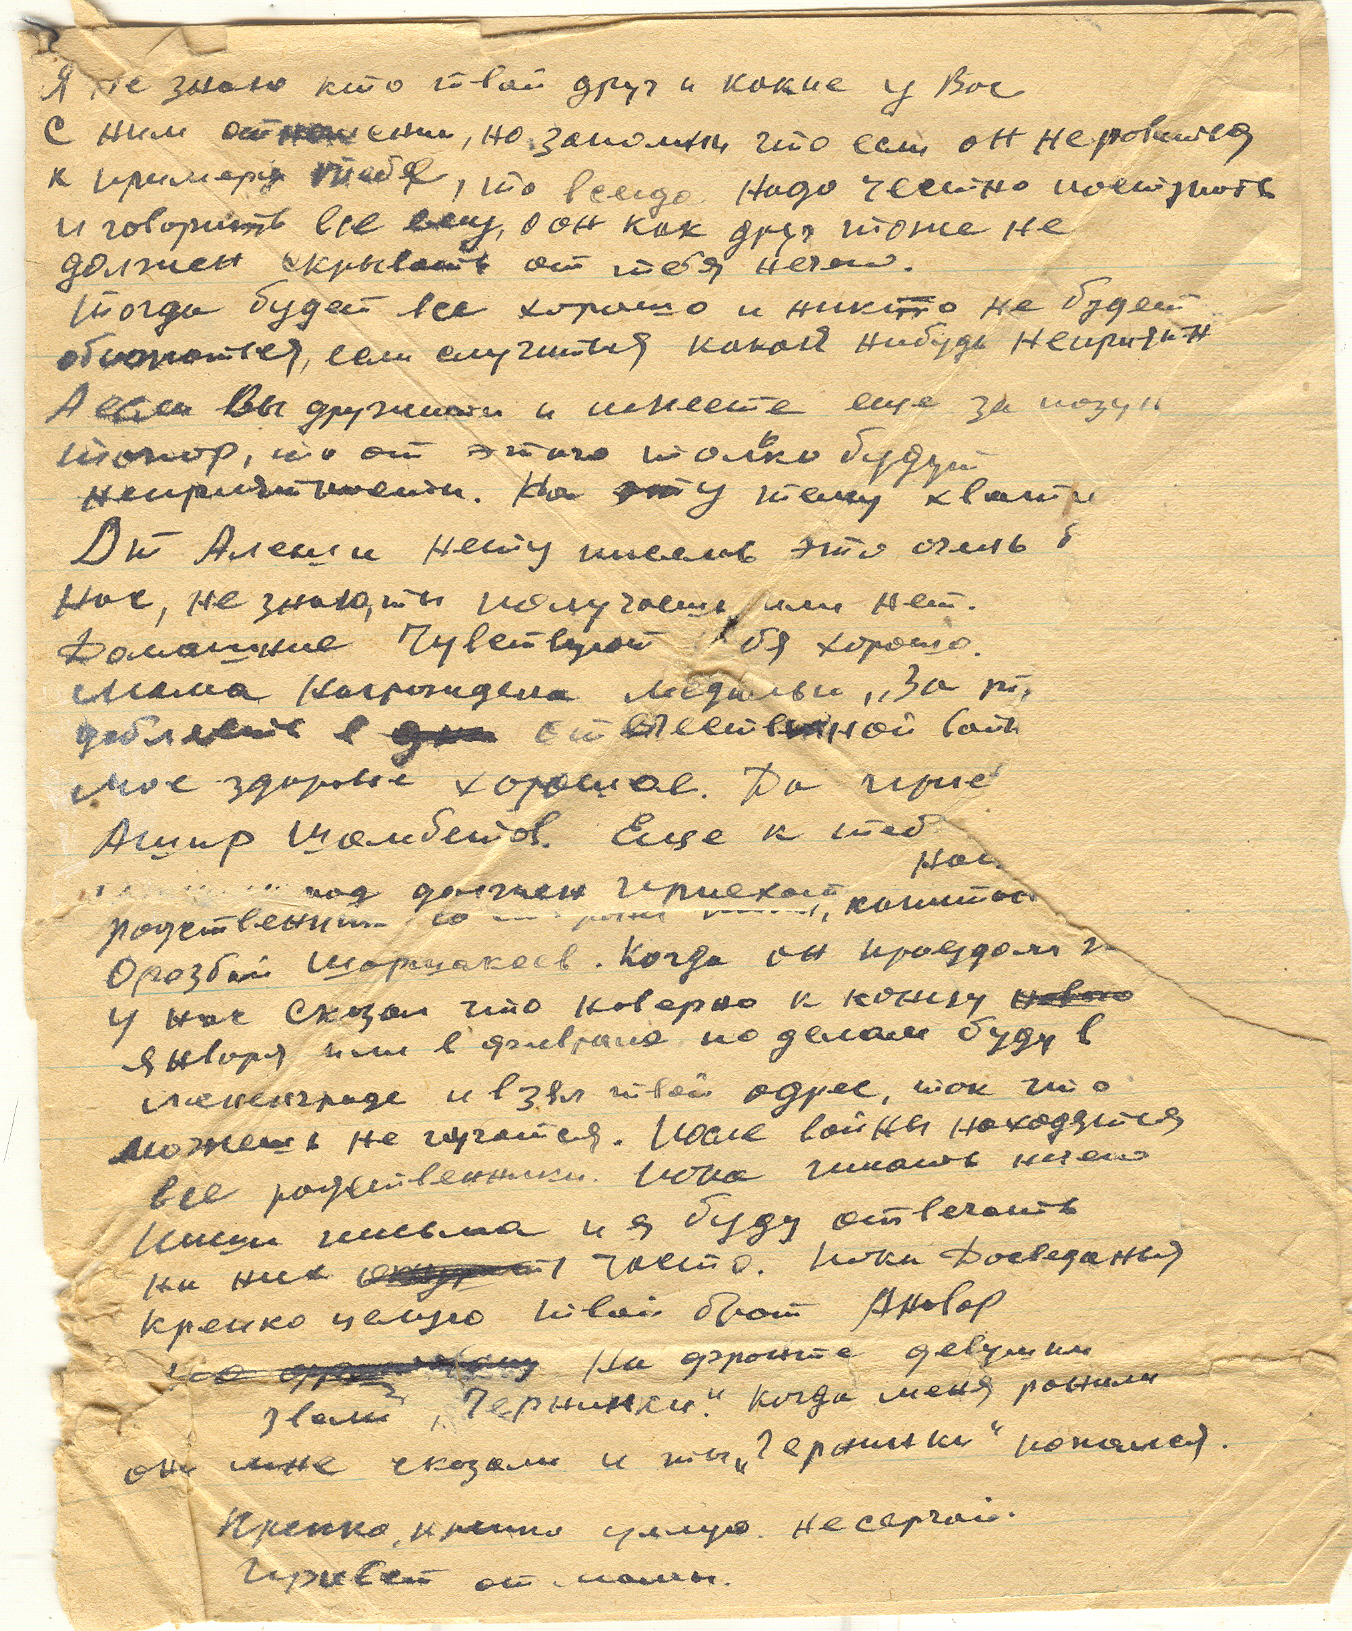 Я не знаю кто твой друг и какие у Вас
с ним отношении, но запомни что если он не ровится
к примеру тебе, то всегда надо честно поступать
и говорить все ему, а он как друг тоже не
должен скрывать от тебя нечего.
Тогда будет все хорошо и никто не будет
обижатся, если случится какой нибудь неприятн
А если Вы дружили и имеете еще за пазух
топор, то от этого только будут
неприятности. На эту тему хвати
От Алеши нету писемь это очень б
нас, не знаю, ты получаешь или нет.
Домашние Чувствуют бя хорошо.
Мама награждена медалью „За
доблесть в отвечественной вой
мое здоровье хорошое. Да прие
Ашир Шамбетов. Еще к теб
наш
под должен приехать, капитан
родственник со
Оразбай Шорманов. Когда он проездом
у нас сказал что наверно к концу
января или в феврале по делам буду в
Ленинграде и взял твой адрес, так что
можешь не пугатся. После войны находятся
все родственники. Пока писать нечего
Пиши письма и я буду отвечать
на них часто. Пока Досведания
Крепко целую твой брат Анвар
На фронте девушки
звали „Чернинки“. Когда меня ранили
они мне сказали и ты „Чернинки“ попался.
Крепко, крепко целую. не серчай.
Привет от мамы.